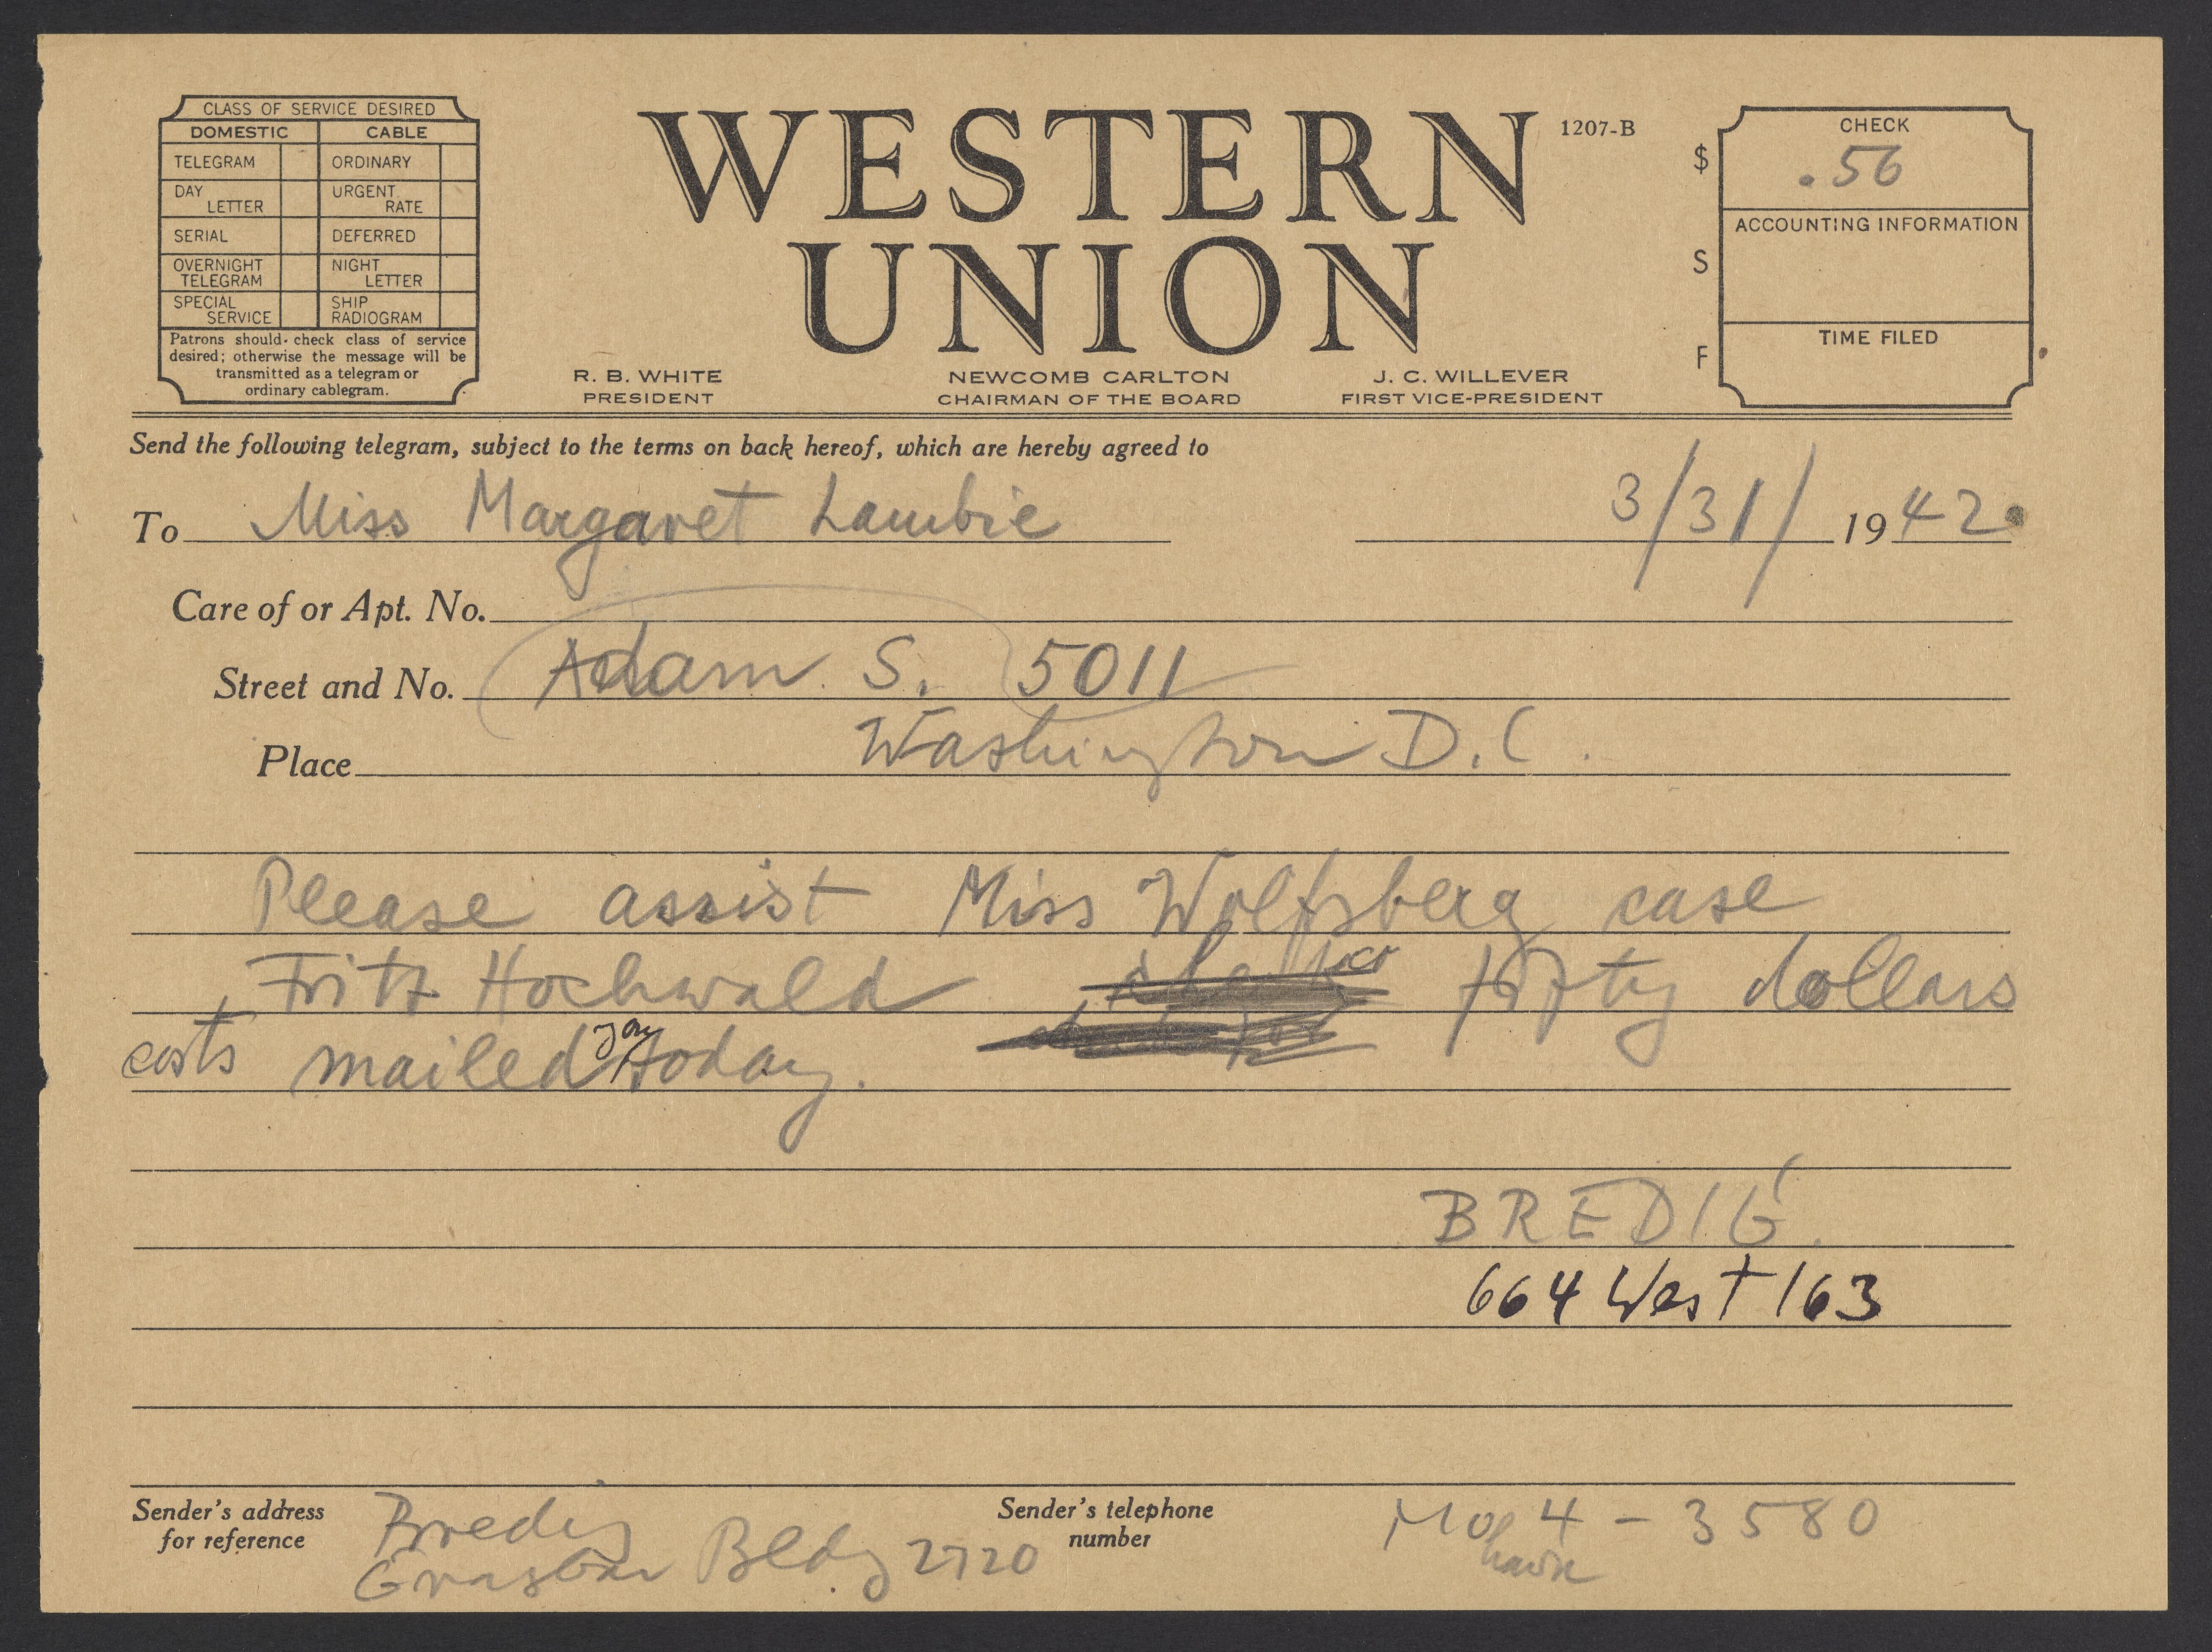 CLASS OF SERVICE DESIRED
DOMESTIC CABLE
TELEGRAM ORDINARY
DAY LETTER URGENT RATE
SERIAL DEFERRED
OVERNIGHT TELEGRAM NIGHT LETTER
SPECIAL SERVICE SHIP RADIOGRAM
Patrons should check class of service
desired; otherwise the message will be
transmitted as a telegram or
ordinary cablegram.
WESTERN
UNION
1207-B
R. B. WHITE
PRESIDENT
NEWCOMB CARLTON
CHAIRMAN OF THE BOARD
J. C. WILLEVER
FIRST VICE-PRESIDENT
$
S
F
CHECK
.56
ACCOUNTING INFORMATION
TIME FILED
Send the following telegram, subject to the terms on back hereof, which are hereby agreed to
To Miss Margaret Lambie 3/31/ 1942.
Care of or Apt. No.
Street and No. Adam S. 5011
Place Washington D.C.
Please assist Miss Wolfsberg case
Fritz Hochwald fifty dollars
costs mailed you today.
BREDIG.
664 West 163
Sender's address
for reference
Bredig
Graybar Bldg 2720
Sender's telephone
number
Mohawk 4-3580